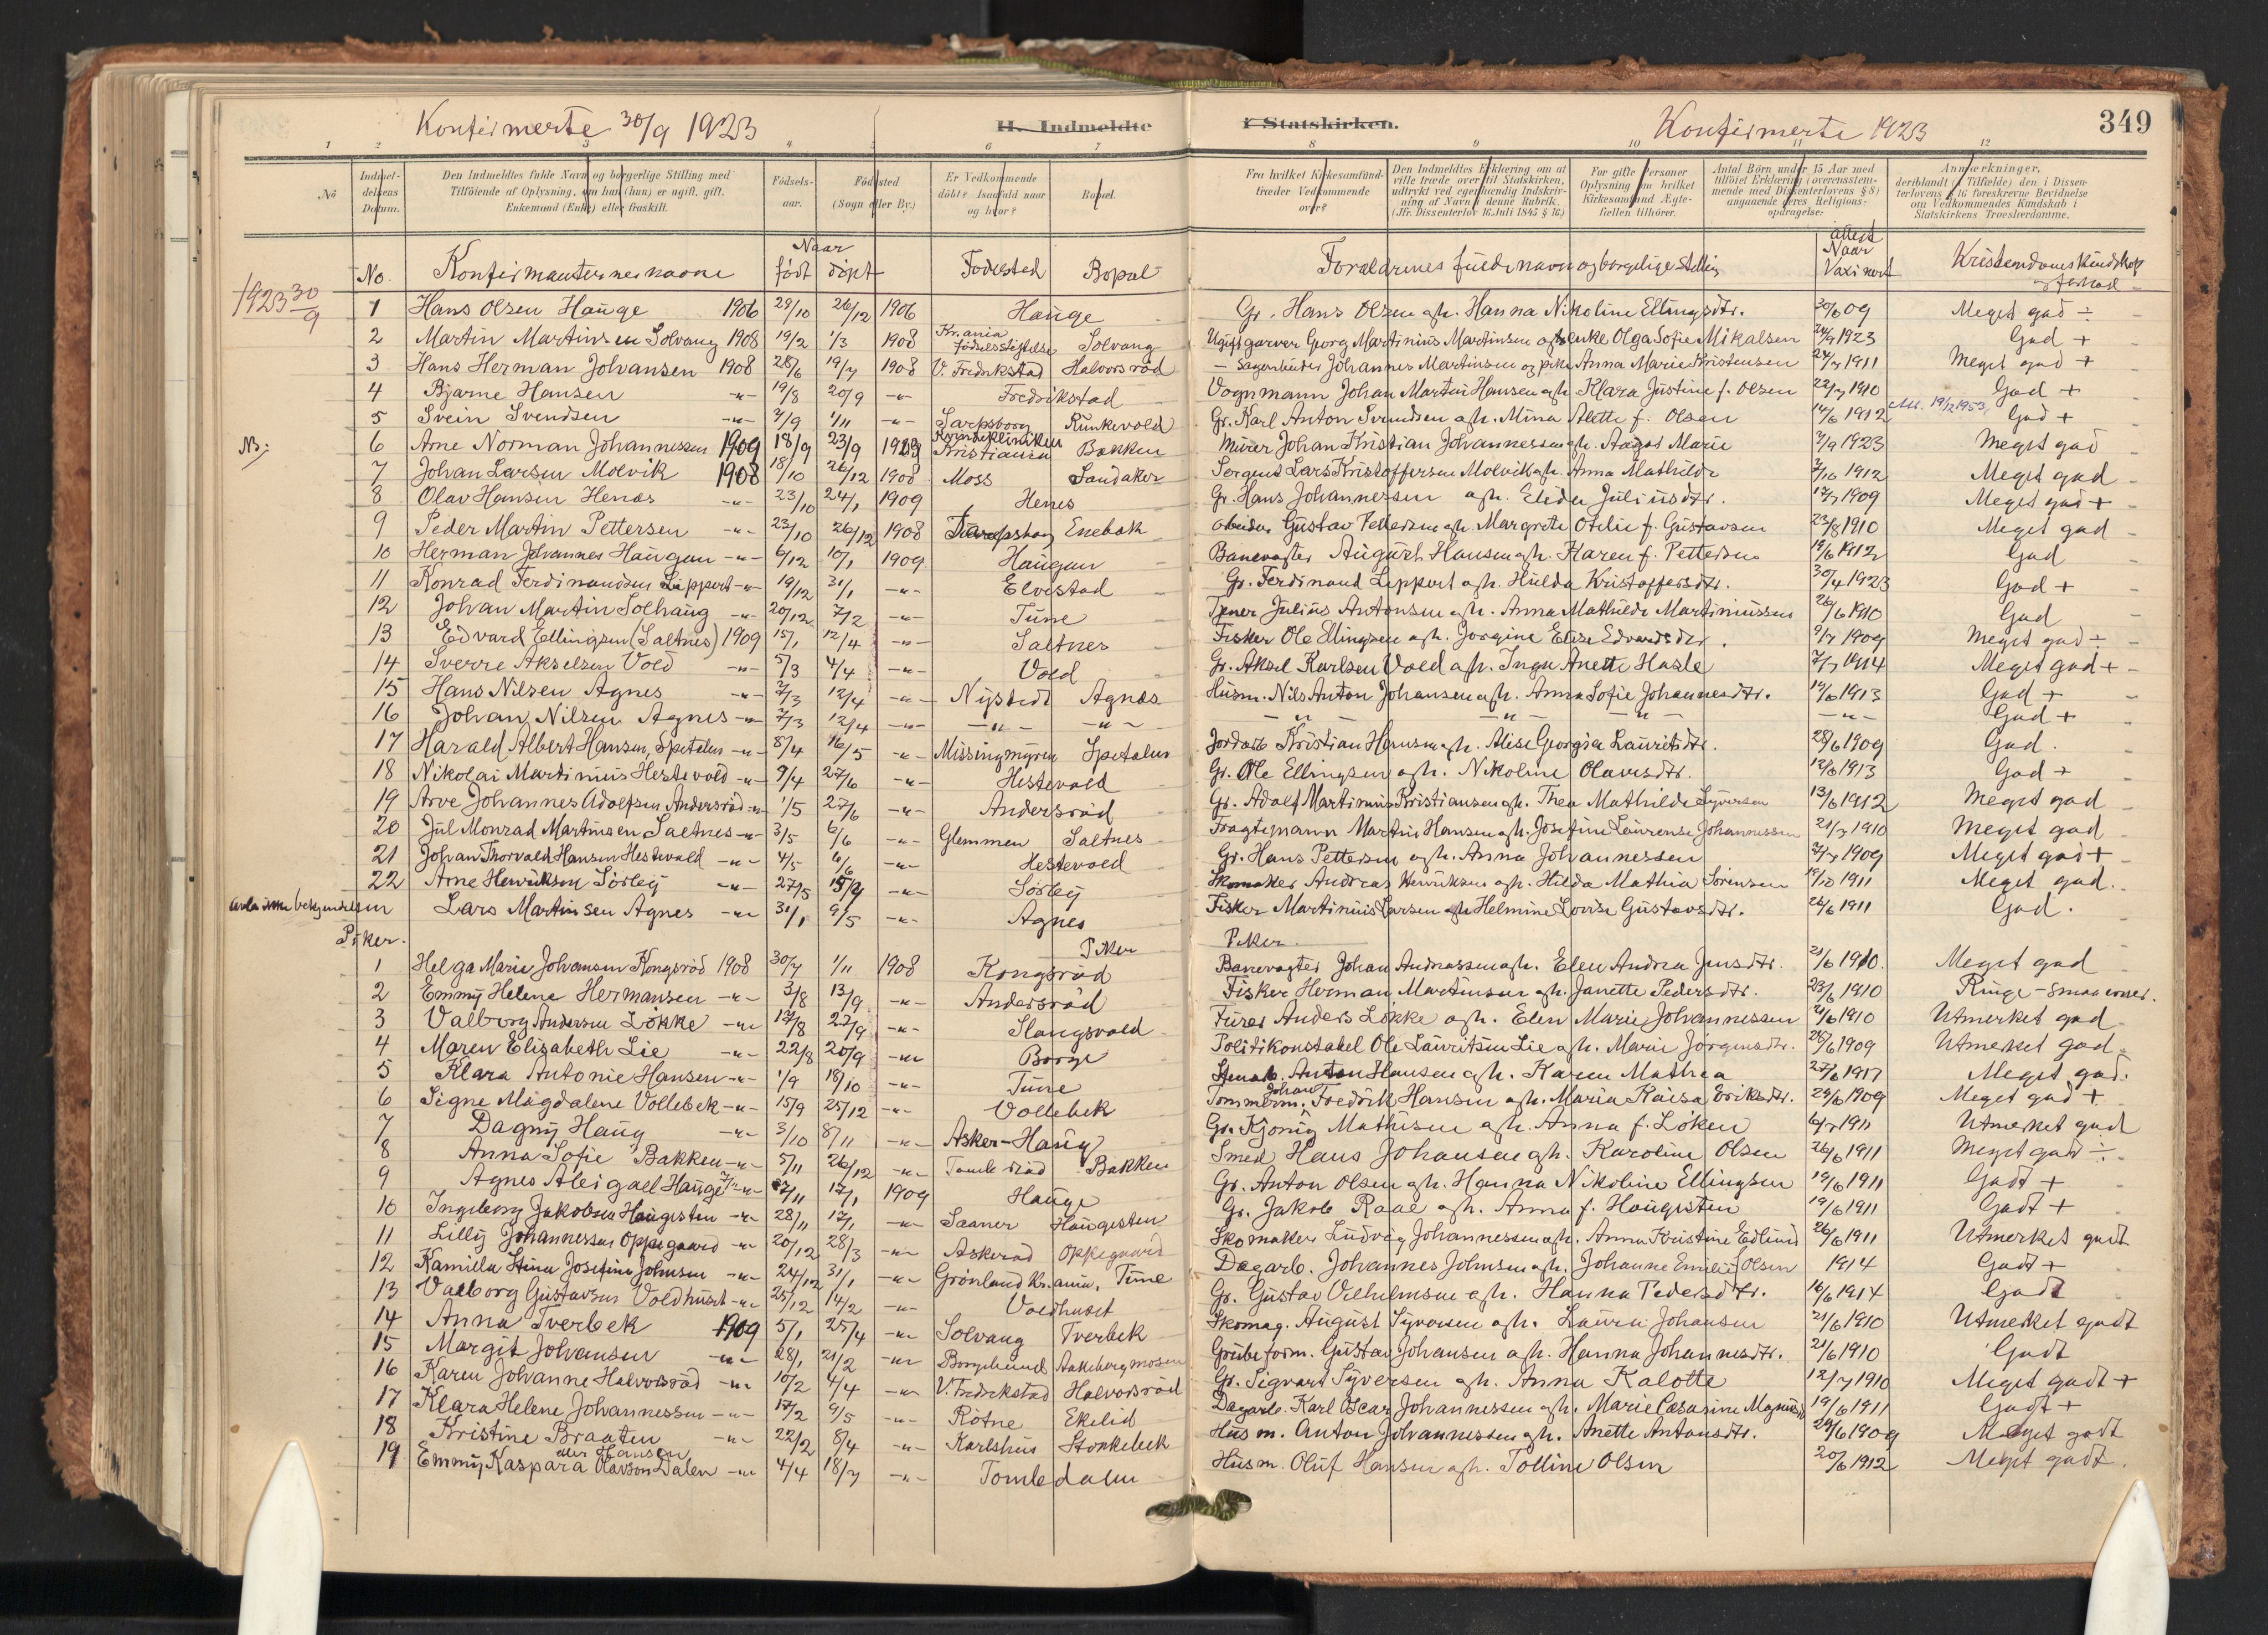 Konfirmerte 30/9 1923
H. Indmeldte
i Statskirken.
Konfirmerte 1923
349
1 2 3 4 5 6 7 8 9 10 11 12
No
Indmel-
delsens
Datum.
Den Indmeldtes fulde Navn og borgerlige Stilling med
Tilföiende af Oplysning, om han (hun) er ugift, gift,
Enkemand (Enke) eller fraskilt.
Födsels-
aar.
Födested
(Sogn eller By.)
Er Vedkommende
döbt? Isaafald naar
og hvor?
Bopæl.
Fra hvilket Kirkesamfund
træder Vedkommende
over?
Den Indmeldtes Erklæring om at
ville træde over til Statskirken,
udtrykt ved egenhændig Indskriv-
ning af Navn i denne Rubrik.
(Jfr. Dissenterlov 16 Juli 1845 § 16.)
For gifte Personer
Oplysning om hvilket
Kirkesamfund Ægte-
fællen tilhörer.
Antal Börn under 15 Aar med
tilföiet Erklæring (overensstem-
mende med Dissenterlovens § 8)
angaaende deres Religions-
opdragelse.
Anmerkninger,
deriblandt (i Tilfælde) den i Dissen-
terlovens § 16 foreskrevne Bevidnelse
om Vedkommendes Kundskab i
Statskirkens Troeslærdomme.
No. Konfirmanternes navne Naar født døpt Fødested Bopæl Forældrenes fulde navn og borgelige stilling attest Naar Vaxinert Kristendomskundskap
1923 30/9
1 Hans Olsen Hauge 1906 29/10 26/12 1906 Hauge Gr. Hans Olsen og h. Hanna Nikoline Ellingsdtr. 30/6 09 Meget god ÷
2 Martin Martinsen Solvang 1908 19/2 1/3 1908 Kr.ania fødselsstiftelse Solvang Ugift garver Georg Martinius Martinsen og enke Olga Sofie Mikalsen 24/9 1923 God +
3 Hans Herman Johansen 1908 28/6 19/7 1908 V. Fredrikstad Halvorsrød – Johannes Martinsen og pike Anna Marie Kristensen 24/7 1911 Meget god +
4 Bjarne Hansen -"- 19/8 20/9 -"- Fredrikstad Vognmann Johan Martin Hansen og h. Klara Justine f. Olsen 22/7 1910 God +
5 Svein Svendsen -"- 7/9 1/11 -"- Sarpsborg Runkevold Gr. Karl Anton Svendsen og h. Mina Alette f. Olsen 14/6 1912 Att. 19/12 1953 God +
NB: 6 Arne Norman Johannessen 1909 18/9 23/9 1909 Kvindeklinikken Kristiania Bakken Murer Johan Kristian Johannessen og h. Aagot Marie 3/9 1923 Meget god
7 Johan Larsen Molvik 1908 18/10 26/12 1908 Moss Sandaker Sergent Lars Kristoffersen Molvik og h. Anna Mathilde 7/10 1912 Meget god
8 Olav Hansen Henæs -"- 23/10 24/1 1909 Henes Gr. Hans Johannessen og h. Elida Juliusdtr. 12/7 1909 Meget god +
9 Peder Martin Pettersen -"- 23/10 26/12 1908 Enebak Gustav Pettersen og h. Margrete Otilie f. Gustavsen 23/8 1910 Meget god
10 Herman Johannes Haugan -"- 6/12 10/1 1909 Haugan Banevogter August Hansen og h. Karen f. Pettersen 19/6 1912 God
11 Konrad Ferdinandsen Lippert -"- 19/12 31/1 -"- Elvestad Gr. Ferdinand Lippert og h. Hulda Kristoffersdtr. 30/4 1923 God +
12 Johan Martin Solhaug -"- 20/12 7/2 -"- Tune Tjener Julius Antonsen og h. Anna Mathilde Martiniussen 26/6 1910 God
13 Edvard Ellingsen (Saltnes) 1909 15/1 12/4 -"- Saltnes Fisker Ole Ellingsen og h. Jorgine Elise Edvardsdtr. 9/7 1909 Meget god ÷
14 Sverre Akselsen Vold -"- 5/3 4/4 -"- Vold Gr. Aksel Karlsen Vold og h. Inga Anette Hasle 7/7 1914 Meget god +
15 Hans Nilsen Agnes -"- 7/3 12/4 -"- Nystedt Agnæs Husm. Nils Anton Johansen og h. Anna Sofie Johannesdtr. 19/6 1913 God +
16 Johan Nilsen Agnes -"- 7/3 12/4 -"- -"- -"- -"- -"- -"- -"- God +
17 Harald Albert Hansen, Spetalen -"- 8/4 16/5 -"- Missingmyren Spetalen Jordarb Kristian Hansen og h. Alise Georgia Lauritsdtr. 28/6 1909 God.
18 Nikolai Martinius Hestevold -"- 9/4 27/6 -"- Hestevold Gr. Ole Ellingsen og h. Nikoline Olausdtr. 12/6 1913 God +
19 Arve Johannes Adolfsen Andersrød -"- 1/5 27/6 -"- Andersrød Gr. Adolf Martinius Kristiansen og h. Thea Mathilde Syversen 13/6 1912 Meget god
20 Jul Monrad Martinsen Saltnes -"- 3/5 6/6 -"- Glemmen Saltnes Fragtemann Martin Hansen og h. Josefine Laurense Johannessen 21/7 1910 Meget god
21 Johan Thorvald Hansen Hestevold -"- 4/5 6/6 -"- Hestevold Gr. Hans Pettersen og h. Anna Johannessen 2/7 1909 Meget god +
22 Arne Henriksen Sørlej -"- 27/5 15/9 -"- Sørlej Skomaker Andreas Henriksen og h. Hilda Mathia Sørensen 19/10 1911 Meget god.
Lars Martinsen Agnes -"- 31/1 9/5 -"- Agnes Fisker Martinius Larsen og h Helmine Lovise Gustavsdtr. 26/6 1911 God.
Piker. Piker Piker
1 Helga Marie Johansen Kongsrød 1908 30/7 1/11 1908 Kongsrød Banevogter Johan Andreassen og h. Elen Andrea Jensdtr. 21/6 1910. Meget god
2 Emmy Helene Hermansen -"- 3/8 13/9 -"- Andersrød Fisker Herman Martinsen og h. Janette Pedersdtr. 23/6 1910
3 Valborg Andersen Løkke -"- 17/8 27/9 -"- Slangsvold Furer Anders Løkke og h. Elen Marie Johannessen 21/6 1910 Utmerket god
4 Maren Elisabeth Lie -"- 22/8 20/9 -"- Borge Politikonstabel Ole Lauritsen Lie og h. Marie Jørgensdtr. 28/6 1909 Utmerket god
5 Klara Antonie Hansen -"- 1/9 18/10 -"- Tune Anton Hansen og h. Karen Mathea 27/6 1917 Meget god.
6 Signe Magdalene Vollebek -"- 15/9 25/12 -"- Vollebek Tommerm. Johan Fredrik Hansen og h. Maria Kaisa Eriksdtr. 24/6 1909 Meget god +
7 Dagny Haug -"- 3/10 8/11 -"- Asker-Haug Gr. Kjønig Mathisen og h. Anna f. Løken 6/7 1911 Utmerket god
8 Anna Sofie Bakken -"- 5/11 26/12 -"- Tomlerød Bakken Smed Hans Johansen og h. Karoline Olsen 26/6 1911 Meget god ÷
9 Agnes Abigael Hauge -"- 17/1 1909 Hauge Gr. Anton Olsen og h. Hanna Nikoline Ellingsen 19/6 1911 Godt +
10 Ingeborg Jakobsen Haugesten -"- 28/11 17/1 -"- Saaner Haugesten Gr. Jakob Raae og h. Anna f. Haugesten 19/6 1911 Godt +
11 Lilly Johannessen Oppegaard -"- 20/12 28/3 -"- Askerød Oppegaard Skomaker Ludvig Johannessen og h. Anna Kristine Edlund 26/6 1911 Utmerket godt
12 Kamilla Stina Josefine Johnsen -"- 24/12 31/1 -"- Grønland Kr.ania, Tune Dagarb. Johannes Johnsen og h. Johanne Emilie Olsen 1914 Godt +
13 Valborg Gustavsen Voldhuset -"- 25/12 14/2 -"- Voldhuset Gr. Gustav Vilhelmsen og h. Hanna Pedersdtr. 16/6 1914 Godt
14 Anna Tverbek 1909 5/1 25/4 -"- Solvang Tverbek Skomag. August Syversen og h. Laura Johansen 21/6 1910 Utmerket godt
15 Margit Johansen -"- 28/1 21/2 -"- Borgelund Aakebergmosen Grubeform. Gustav Johansen og h. Hanna Johannesdtr. 21/6 1910 Godt
16 Karen Johanne Halvorsrød -"- 10/2 4/4 -"- V. Fredrikstad Halvorsrød Gr. Sigvart Syversen og h. Anna Kalotte 12/7 1910 Meget godt +
17 Klara Helene Johannessen -"- 17/2 9/5 -"- Rotne Ekelid Dagarb. Karl Oscar Johannessen og h. Marie Cæsarine 19/6 1911 Godt +
18 Kristine Braaten -"- 22/2 8/4 -"- Karlshus Stonkebek Husm. Anton Johannessen og h. Anette Antonsdtr. 29/6 1909 Meget godt
19 Emmy Kaspara Olavsen Dalen eller Hansen -"- 4/4 18/7 -"- Tombedalen Husm. Oluf Hansen og h. Tolline Olsen 20/6 1912 Meget godt.